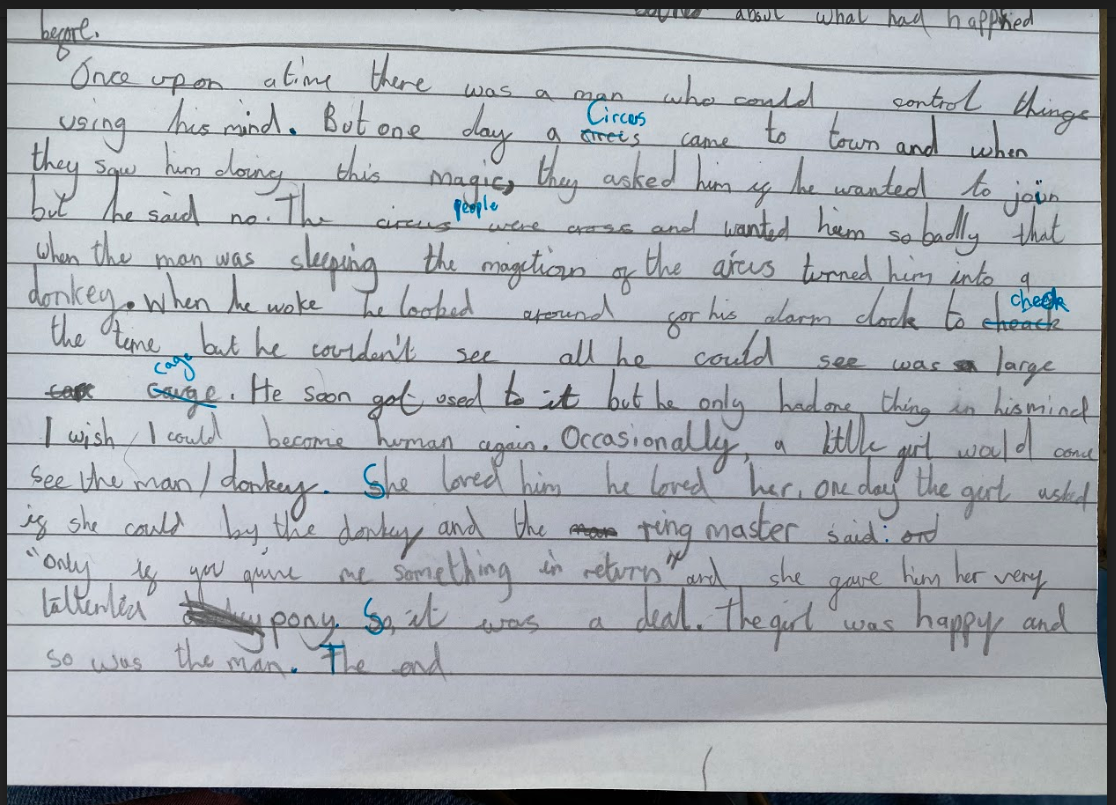 about what had happned
before.
Once upon a time there was a man who could control things
using his mind. But one day a Circus came to town and when
they saw him doing this magic, they asked him if he wanted to join
but he said no. The circus people were cross and wanted him so badly that
when the man was sleeping the magition of the circus turned him into a
donkey. When he woke he looked around for his alarm clock to check
the time but he couldn't see all he could see was a large
cage. He soon got used to it but he only had one thing in his mind
I wish I could become human again. Occasionally, a little girl would come
see the man/donkey. She loved him he loved her. one day the girl asked
if she could by the donkey and the ring master said:
"only if you give me something in return" and she gave him her very
tallented pony. So, it was a deal. The girl was happy and
so was the man. The end